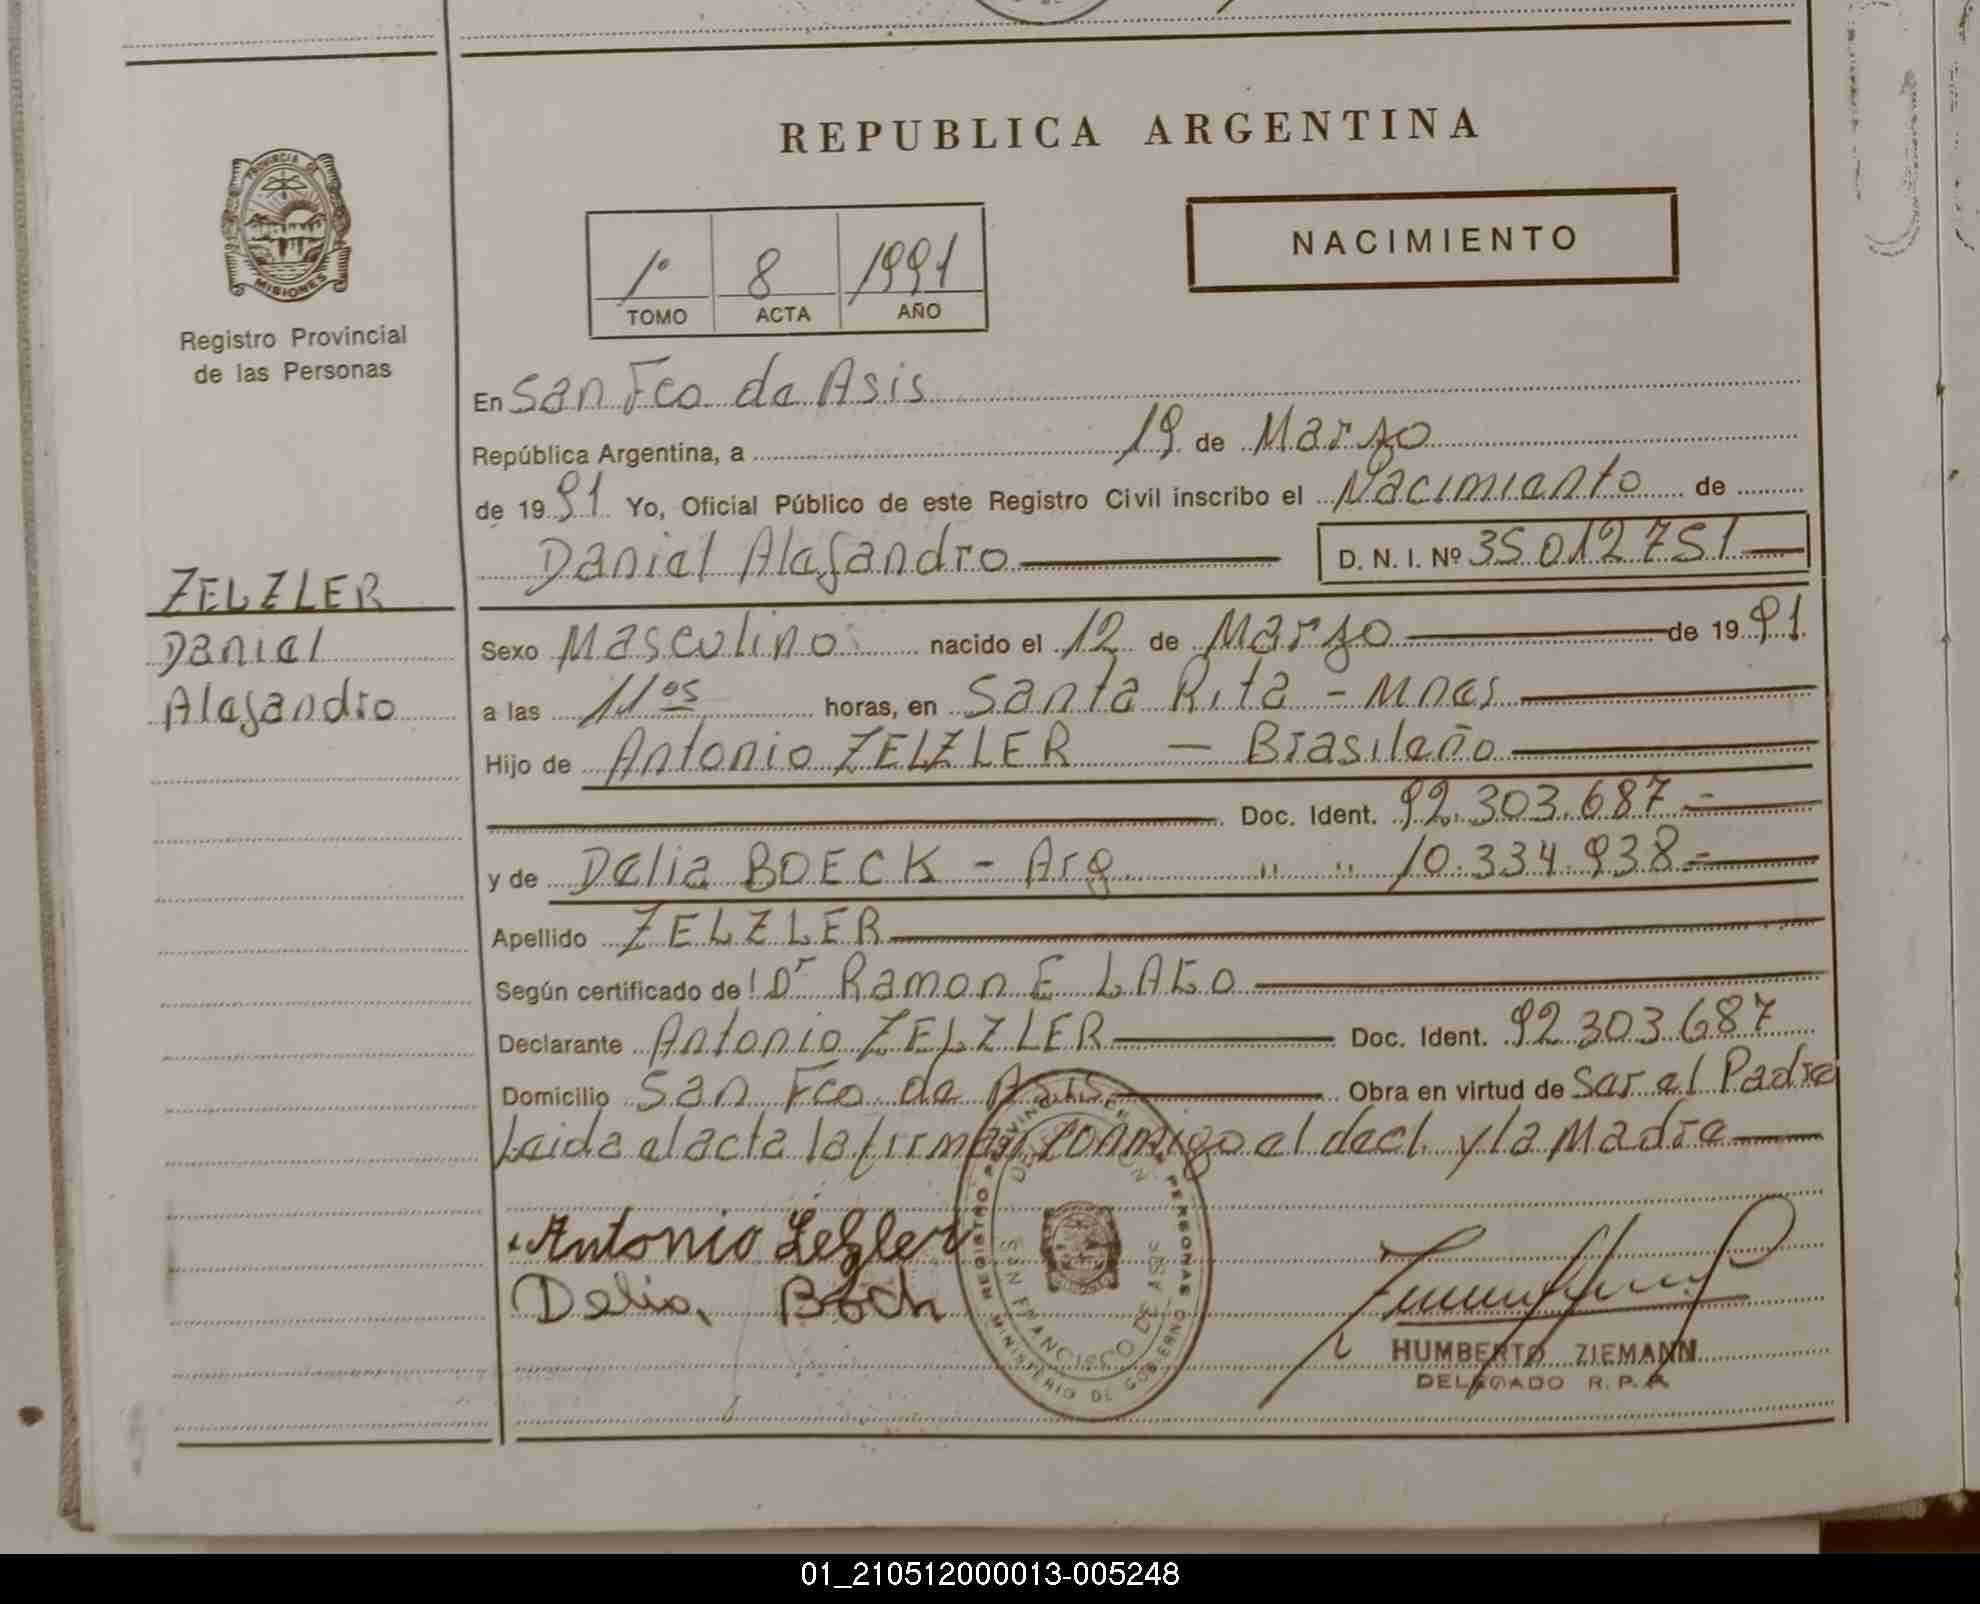 REPUBLICA ARGENTINA
PROVINCIA DE MISIONES
Registro Provincial
de las Personas
NACIMIENTO
1º 8 1991
TOMO ACTA AÑO
En San Fco de Asis
República Argentina, a 19 de Marzo
de 1991 Yo, Oficial Público de este Registro Civil inscribo el Nacimiento de
Daniel Alejandro D. N. I. Nº 35012751
ZELZLER
Daniel
Alejandro
Sexo Masculino nacido el 12 de Marzo de 1991.
a las 11os horas, en Santa Rita - Mnes
Hijo de Antonio ZELZLER - Brasileño
Doc. Ident. 92.303.687.-
y de Delia BOECK - Arg " " 10.334.938.-
Apellido ZELZLER
Según certificado de: Dr Ramon E LAGO
Declarante Antonio ZELZLER Doc. Ident. 92.303.687
Domicilio San Fco de Asis Obra en virtud de Ser el Padre
Leida el acta la firman conmigo el decl. y la Madre
Antonio
Delia
REGISTRO PROVINCIAL DE PERSONAS
MINISTERIO DE GOBIERNO
SAN FRANCISCO DE ASIS
HUMBERTO ZIEMANN
DELEGADO R. P. P.
01_210512000013-005248